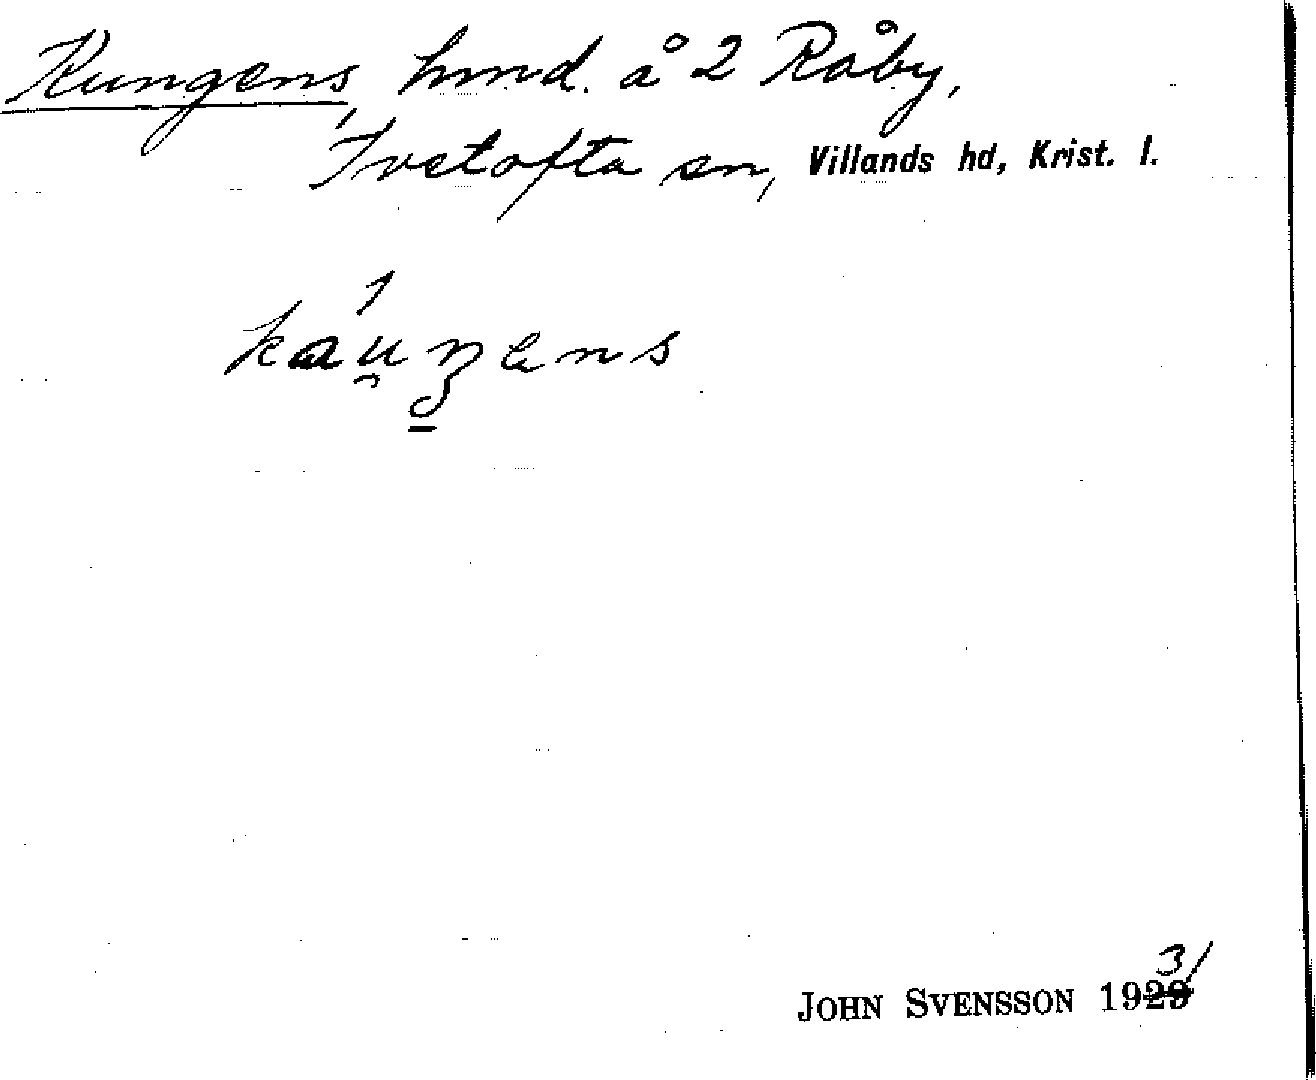 Kungens, hmd. å 2 Råby,
Ivetofta sn, Villands hd, Krist. l.
kau̯ŋens
JOHN SVENSSON 1931